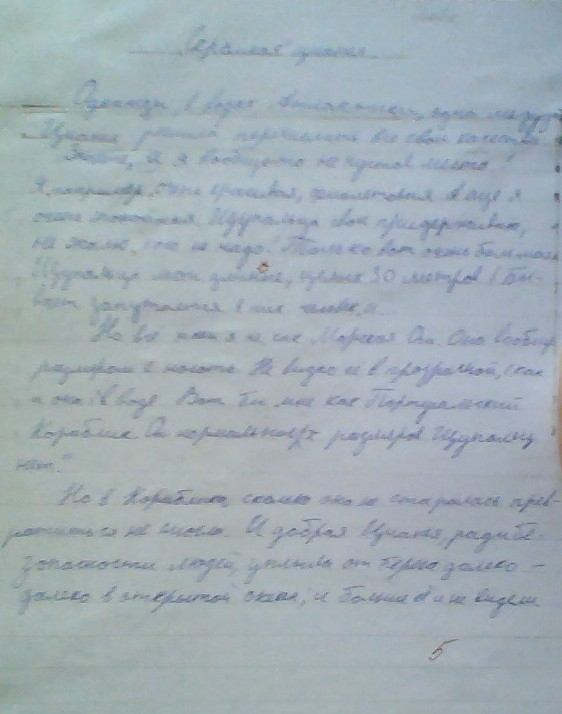 цианея
Однажды, в водах Атлантики, одна медуза
Цианея решила перечислить все свои качества
Знаете, а я вообще-то не пустое место!
Я, например, очень красивая, фиолетовая. А ещё я
очень спокойная. Щупальца свои придерживаю,
не жалю, кого не надо! Только вот очень большая.
Щупальца мои длинные, целых 30 метров! Бы-
вает запутается в них человек,
Но всё таки я не как Морская Оса. Она вообще
размером с ноготь. Не видно её в прозрачной, как
и она в воде. Вот бы мне как Португальский
Кораблик. Он нормальных размеров щупалец
нет."
Но в Кораблика, сколько она не старалась прев-
ратиться не смогла. И добрая Цианея, ради бе-
зопасности людей, уплыла от берега далеко -
далеко в открытый океан, и больше её не видели
5